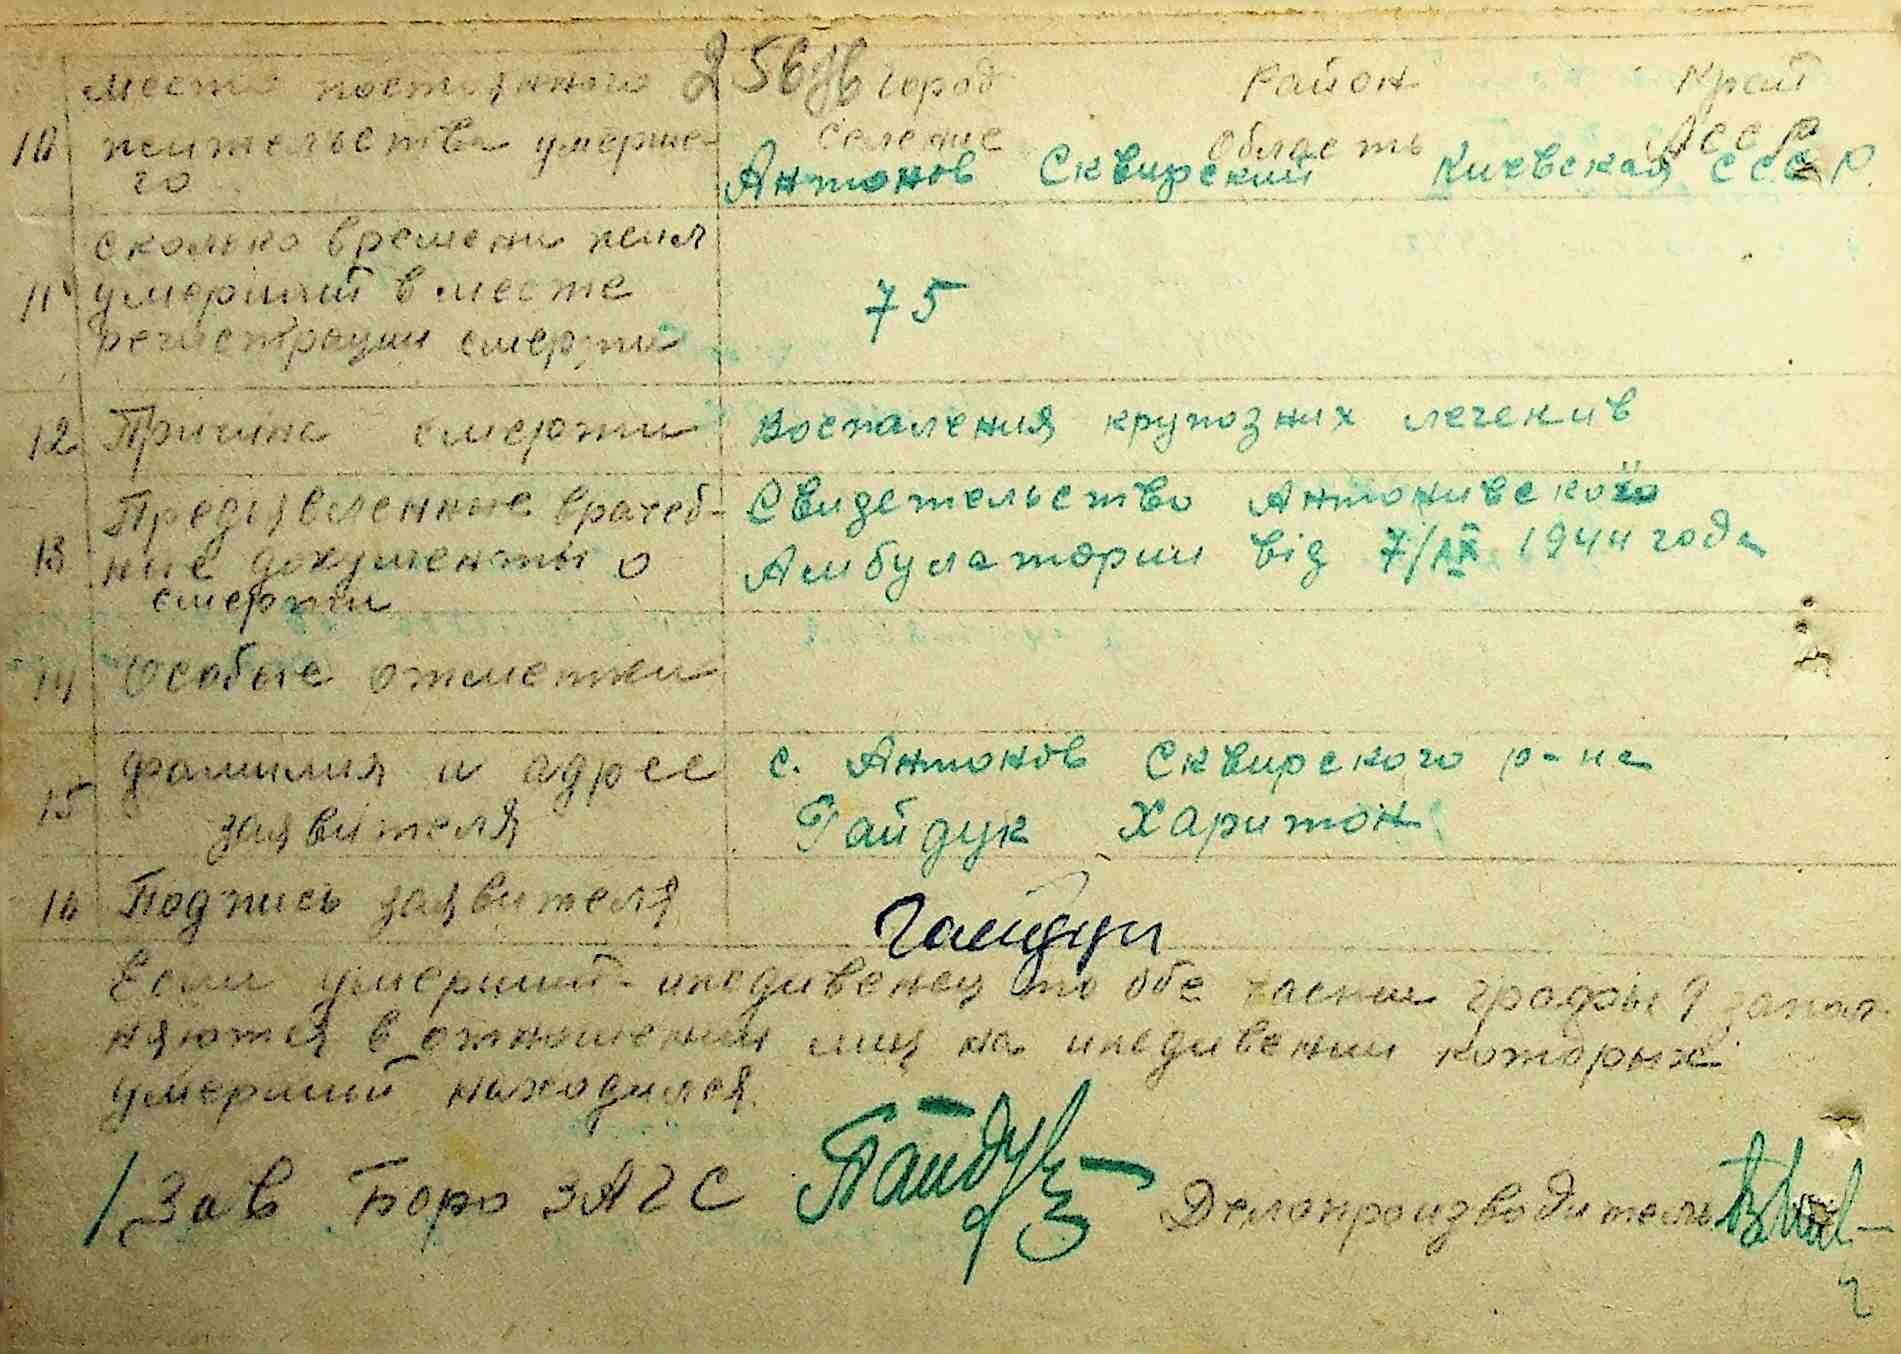 Место постоянного город Район Край
10 жительства умерше- селение область АССР
го Антонов Сквирский Киевская СССР
сколько времени жил
11 умерший в месте 75
регистрации смерти
12 Причина смерти Воспаления крупозних легенив
Предъявленные врачеб- Свидетельство Антонивской
13 ние документы о Амбулатории від 7/IX 1944 года
смерти
14 Особые отметки
фамилия и адрес с. Антонов Сквирского р-на
15 заявителя Гайдук Харитон
16 Подпись заявителя Гайдук
Если умерший-иждивенец то обе части графы 9 запол-
няются в отношении лиц на иждивении которых
умерший находился.
Зав Бюро ЗАГС Делопроизводитель